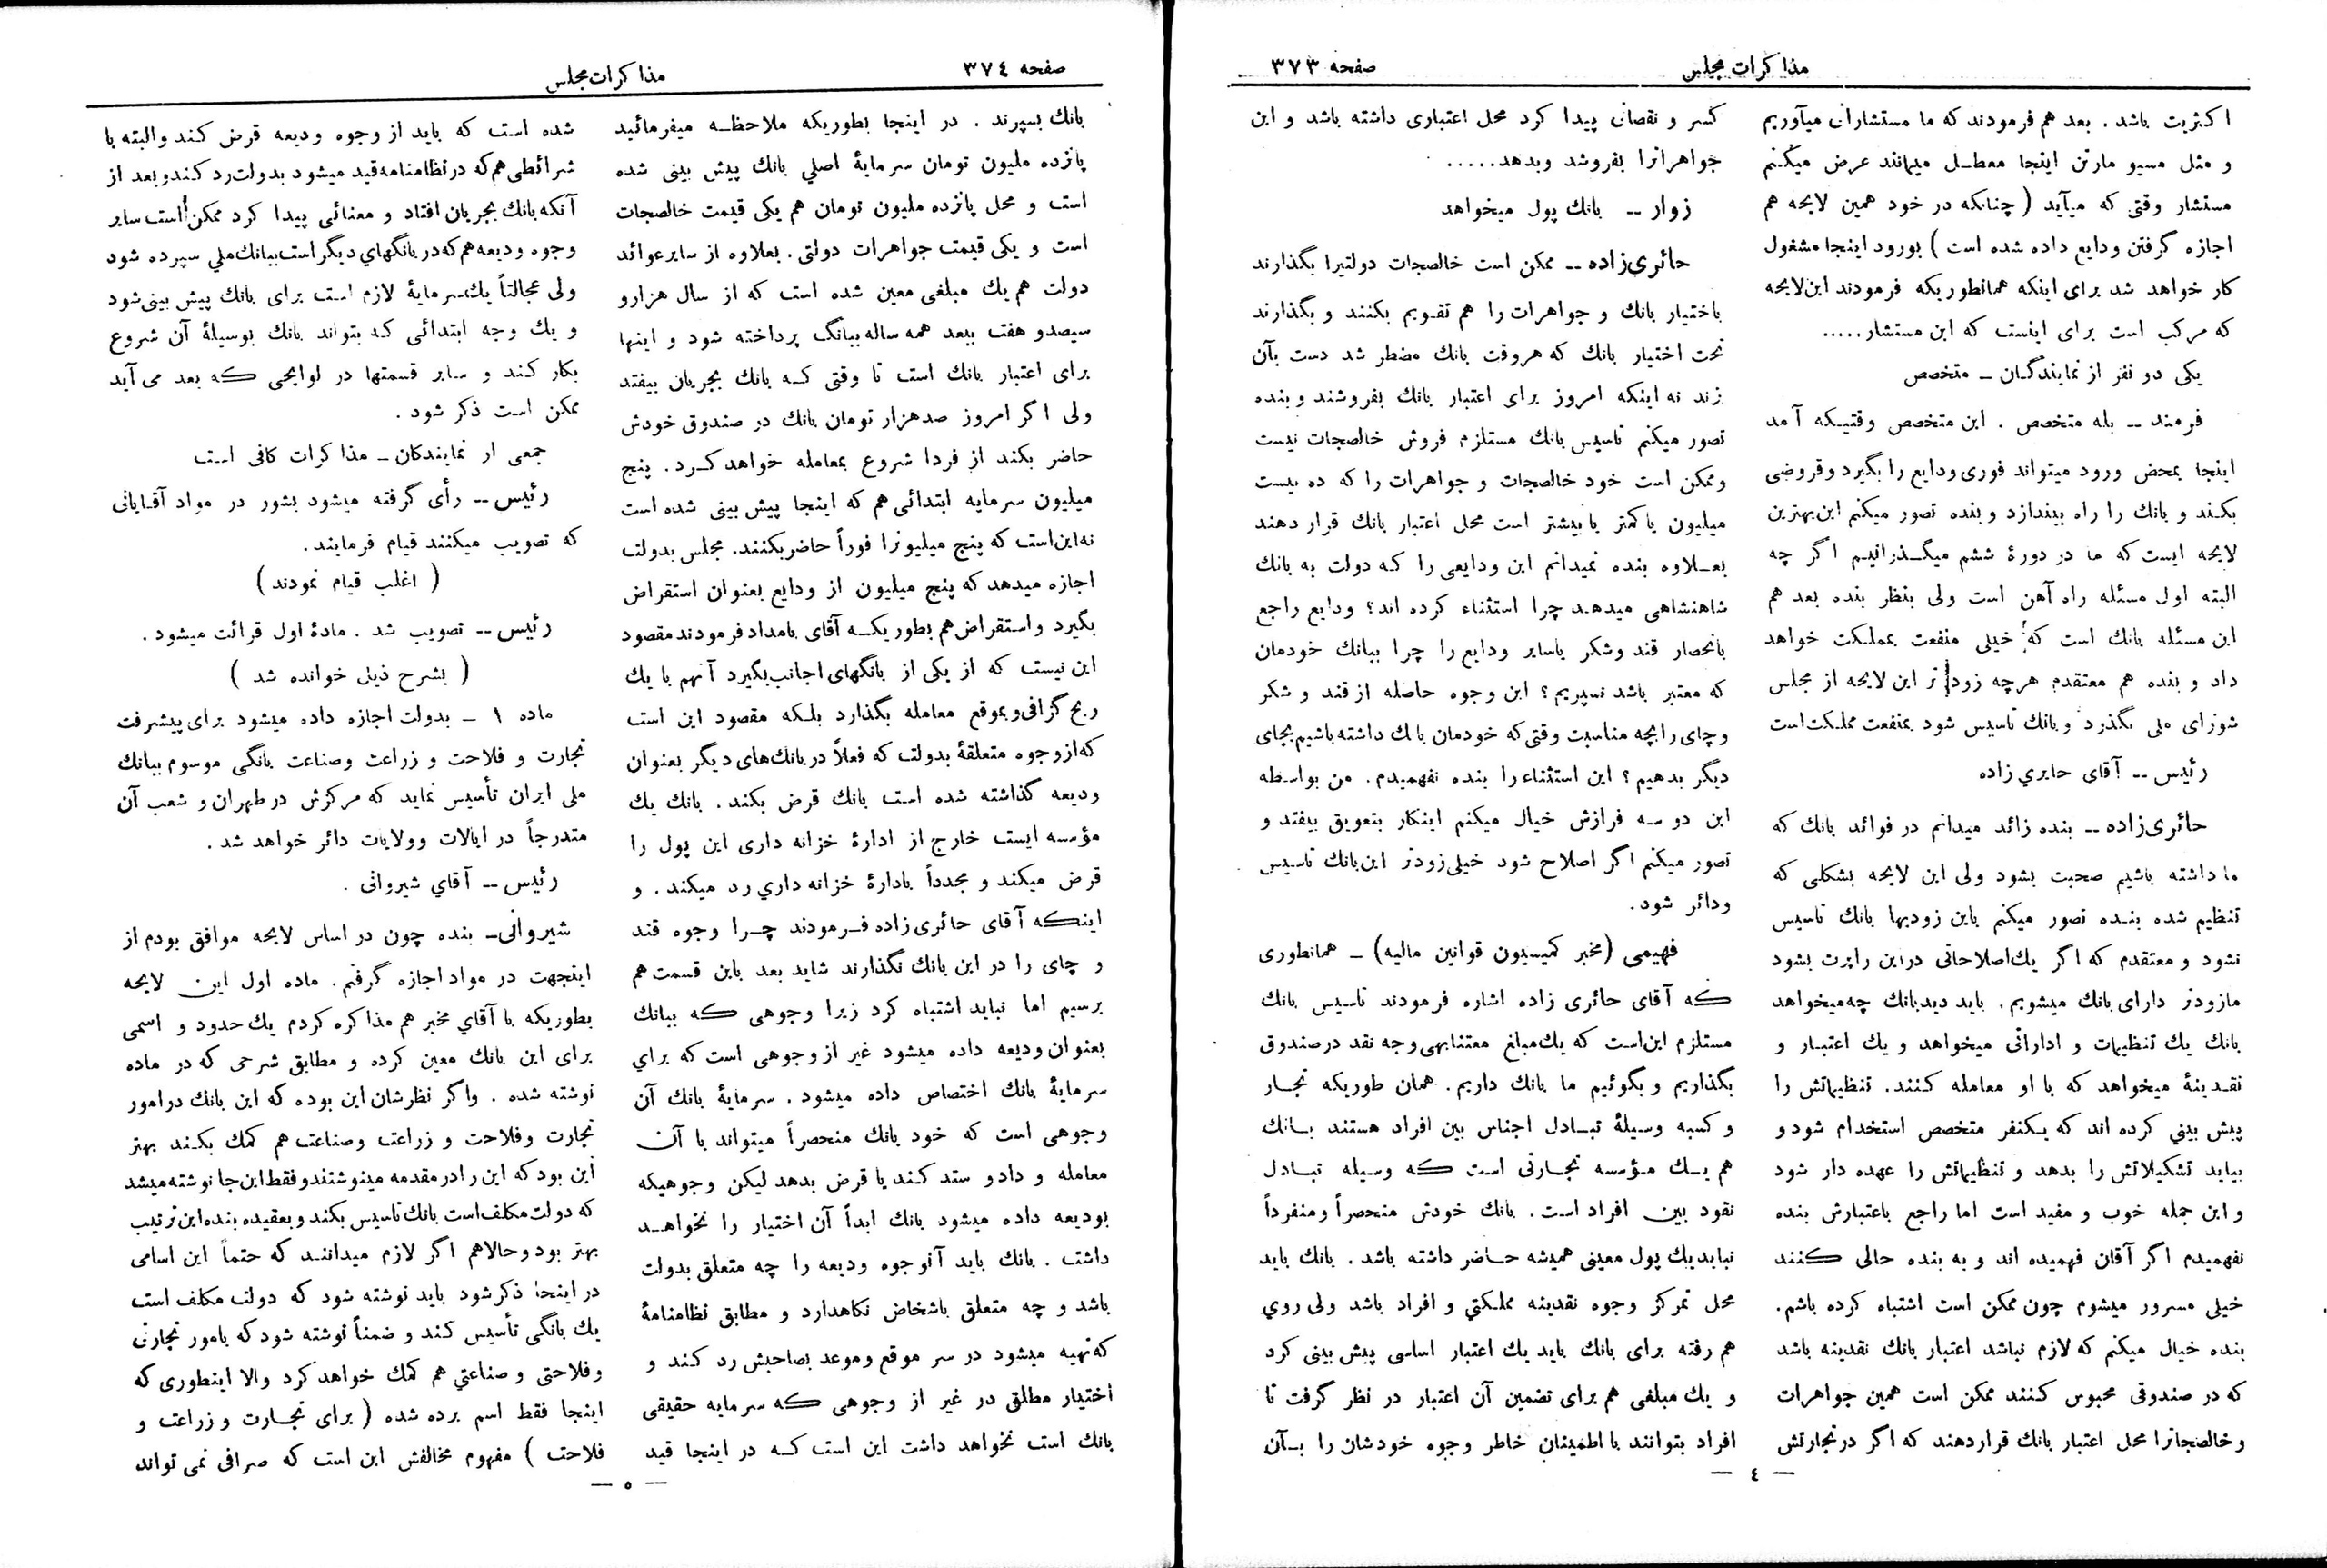 صفحه ۳۷۳
مذاكرات مجلس
اكثريت باشد . بعد هم فرمودند كه ما مستشاران ميآوريم
و مثل مسيو مارتن اينجا معطل ميمانند عرض ميكنم
مستشار وقتى كه ميآيد ( چنانكه در خود همين لايحه هم
اجازه گرفتن ودايع داده شده است ) بورود اينجا مشغول
كار خواهد شد براى اينكه همانطوريكه فرمودند اين لايحه
كه مركب است براى اينست كه اين مستشار.....
يكى دو نفر از نمايندگان ــ متخصص
فرمند ــ بله متخصص . اين متخصص وقتيكه آمد
اينجا بمحض ورود ميتواند فورى ودايع را بگيرد و قروضى
بكند و بانك را راه بيندازد و بنده تصور ميكنم اين بهترين
لايحه ايست كه ما در دورهٔ ششم ميگذرانيم اگر چه
البته اول مسئله راه آهن است ولى بنظر بنده بعد هم
اين مسئله بانك است كه خيلى منفعت بمملكت خواهد
داد و بنده هم معتقدم هرچه زودتر اين لايحه از مجلس
شوراى ملى بگذرد و بانك تاسيس شود بمنفعت مملكت است
رئيس ــ آقاى حايري زاده
حائرى زاده ــ بنده زائد ميدانم در فوائد بانك كه
ما داشته باشيم صحبت بشود ولى اين لايحه بشكلى كه
تنظيم شده بنده تصور ميكنم باين زوديها بانك تاسيس
نشود و معتقدم كه اگر يك اصلاحاتى در اين راپرت بشود
مازودتر داراى بانك ميشويم. بايد ديد بانك چه ميخواهد
بانك يك تنظيمات و اداراتى ميخواهد و يك اعتبار و
نقدينهٔ ميخواهد كه با او معامله كنند. تنظيماتش را
پيش بيني كرده اند كه يكنفر متخصص استخدام شود و
بيايد تشكيلاتش را بدهد و تنظيماتش را عهده دار شود
و اين جمله خوب و مفيد است اما راجع باعتبارش بنده
نفهميدم اگر آقان فهميده اند و به بنده حالى كنند
خيلى مسرور ميشوم چون ممكن است اشتباه كرده باشم.
بنده خيال ميكنم كه لازم نباشد اعتبار بانك نقدينه باشد
كه در صندوقى محبوس كنند ممكن است همين جواهرات
و خالصجاترا محل اعتبار بانك قراردهند كه اگر در تجارتش
كسر و نقصانى پيدا كرد محل اعتبارى داشته باشد و اين
جواهراترا بفروشد وبدهد.....
زوار ــ بانك پول ميخواهد
حائرى زاده ــ ممكن است خالصجات دولتيرا بگذارند
باختيار بانك و جواهرات را هم تقويم بكنند و بگذارند
تحت اختيار بانك كه هروقت بانك مضطر شد دست بآن
زند نه اينكه امروز براى اعتبار بانك بفروشند و بنده
تصور ميكنم تاسيس بانك مستلزم فروش خالصجات نيست
وممكن است خود خالصجات و جواهرات را كه ده بيست
ميليون يا كمتر يا بيشتر است محل اعتبار بانك قرار دهند
بعلاوه بنده نميدانم اين ودايعى را كه دولت به بانك
شاهنشاهى ميدهد چرا استثناء كرده اند؟ ودايع راجع
بانحصار قند و شكر ياساير ودايع را چرا ببانك خودمان
كه معتبر باشد نسپريم؟ اين وجوه حاصله از قند و شكر
و چاى را بچه مناسبت وقتى كه خودمان بانك داشته باشيم بجاى
ديگر بدهيم؟ اين استثناء را بنده نفهميدم. من بواسطه
اين دو سه فرازش خيال ميكنم اينكار بتعويق بيفتد و
تصور ميكنم اگر اصلاح شود خيلى زودتر اين بانك تاسيس
ودائر شود.
فهيمى (مخبر كميسيون قوانين ماليه) ــ همانطورى
كه آقاى حائرى زاده اشاره فرمودند تاسيس بانك
مستلزم اين است كه يك مبلغ معتنابهى وجه نقد در صندوق
بگذاريم و بگوئيم ما بانك داريم. همان طوريكه تجار
و كسبه وسيلهٔ تبادل اجناس بين افراد هستند بانك
هم يك مؤسسه تجارتى است كه وسيله تبادل
نقود بين افراد است. بانك خودش منحصراً و منفرداً
نبايد يك پول معينى هميشه حاضر داشته باشد. بانك بايد
محل تمركز وجوه نقدينه مملكتي و افراد باشد ولى روي
هم رفته براى بانك بايد يك اعتبار اساسى پيش بينى كرد
و يك مبلغى هم براى تضمين آن اعتبار در نظر گرفت تا
افراد بتوانند با اطمينان خاطر وجوه خودشان را بآن
— ٤ —
صفحه ۳۷٤
مذاكرات مجلس
بانك بسپرند . در اينجا بطوريكه ملاحظه ميفرمائيد
پانزده مليون تومان سرمايهٔ اصلي بانك پيش بينى شده
است و محل پانزده مليون تومان هم يكى قيمت خالصجات
است و يكى قيمت جواهرات دولتى. بعلاوه از ساير عوائد
دولت هم يك مبلغى معين شده است كه از سال هزارو
سيصدو هفت ببعد همه ساله ببانگ پرداخته شود و اينها
براى اعتبار بانك است تا وقتى كه بانك بجريان بيفتد
ولى اگر امروز صدهزار تومان بانك در صندوق خودش
حاضر بكند از فردا شروع بمعامله خواهد كرد. پنج
ميليون سرمايه ابتدائى هم كه اينجا پيش بينى شده است
نه اين است كه پنج ميليونرا فوراً حاضر بكنند. مجلس بدولت
اجازه ميدهد كه پنج ميليون از ودايع بعنوان استقراض
بگيرد و استقراض هم بطوريكه آقاى بامداد فرمودند مقصود
اين نيست كه از يكى از بانگهاى اجانب بگيرد آنهم با يك
ربح گزافى و بموقع معامله بگذارد بلكه مقصود اين است
كه از وجوه متعلقهٔ بدولت كه فعلاً در بانك هاى ديگر بعنوان
وديعه گذاشته شده است بانك قرض بكند. بانك يك
مؤسسه ايست خارج از ادارهٔ خزانه دارى اين پول را
قرض ميكند و مجدداً بادارهٔ خزانه داري رد ميكند. و
اينكه آقاى حائرى زاده فرمودند چرا وجوه قند
و چاى را در اين بانك نگذارند شايد بعد باين قسمت هم
برسيم اما نبايد اشتباه كرد زيرا وجوهى كه ببانك
بعنوان وديعه داده ميشود غير از وجوهى است كه براي
سرمايهٔ بانك اختصاص داده ميشود. سرمايهٔ بانك آن
وجوهى است كه خود بانك منحصراً ميتواند با آن
معامله و دادو ستد كند يا قرض بدهد ليكن وجوهيكه
بوديعه داده ميشود بانك ابداً آن اختيار را نخواهد
داشت. بانك بايد آنوجوه وديعه را چه متعلق بدولت
باشد و چه متعلق باشخاص نگاهدارد و مطابق نظامنامهٔ
كه تهيه ميشود در سر موقع وموعد بصاحبش رد كند و
اختيار مطلق در غير از وجوهى كه سرمايه حقيقى
بانك است نخواهد داشت اين است كه در اينجا قيد
شده است كه بايد از وجوه وديعه قرض كند و البته با
شرائطى هم كه در نظامنامه قيد ميشود بدولت رد كند و بعد از
آنكه بانك بجريان افتاد و معنائى پيدا كرد ممكن است ساير
وجوه وديعه هم كه در بانگهاي ديگر است ببانك ملي سپرده شود
ولى عجالتاً يك سرمايهٔ لازم است براى بانك پيش بينى شود
و يك وجه ابتدائى كه بتواند بانك بوسيلهٔ آن شروع
بكار كند و ساير قسمتها در لوايحى كه بعد مى آيد
ممكن است ذكر شود .
جمعى از نمايندكان ــ مذاكرات كافى است
رئيس ــ رأى گرفته ميشود بشور در مواد آقايانى
كه تصويب ميكنند قيام فرمايند.
( اغلب قيام نمودند )
رئيس ــ تصويب شد . مادهٔ اول قرائت ميشود.
( بشرح ذيل خوانده شد )
ماده ۱ ــ بدولت اجازه داده ميشود براى پيشرفت
تجارت و فلاحت و زراعت وصناعت بانگى موسوم ببانك
ملى ايران تأسيس نمايد كه مركزش در طهران و شعب آن
متدرجاً در ايالات وولايات دائر خواهد شد.
رئيس ــ آقاي شيروانى .
شيروانى ــ بنده چون در اساس لايحه موافق بودم از
اينجهت در مواد اجازه گرفتم. ماده اول اين لايحه
بطوريكه با آقاي مخبر هم مذاكره كردم يك حدود و اسمى
براى اين بانك معين كرده و مطابق شرحى كه در ماده
نوشته شده . واگر نظرشان اين بوده كه اين بانك در امور
تجارت وفلاحت و زراعت وصناعت هم كمك بكند بهتر
اين بود كه اين را در مقدمه مينوشتند و فقط اين جا نوشته ميشد
كه دولت مكلف است بانك تاسيس بكند و بعقيده بنده اين ترتيب
بهتر بود وحالاهم اگر لازم ميدانند كه حتماً اين اسامى
در اينجا ذكر شود بايد نوشته شود كه دولت مكلف است
يك بانگى تأسيس كند و ضمناً نوشته شود كه بامور تجارتى
وفلاحتى و صناعتي هم كمك خواهد كرد والا اينطورى كه
اينجا فقط اسم برده شده ( براى تجارت و زراعت و
فلاحت ) مفهوم مخالفش اين است كه صرافى نمى تواند
— ٥ —